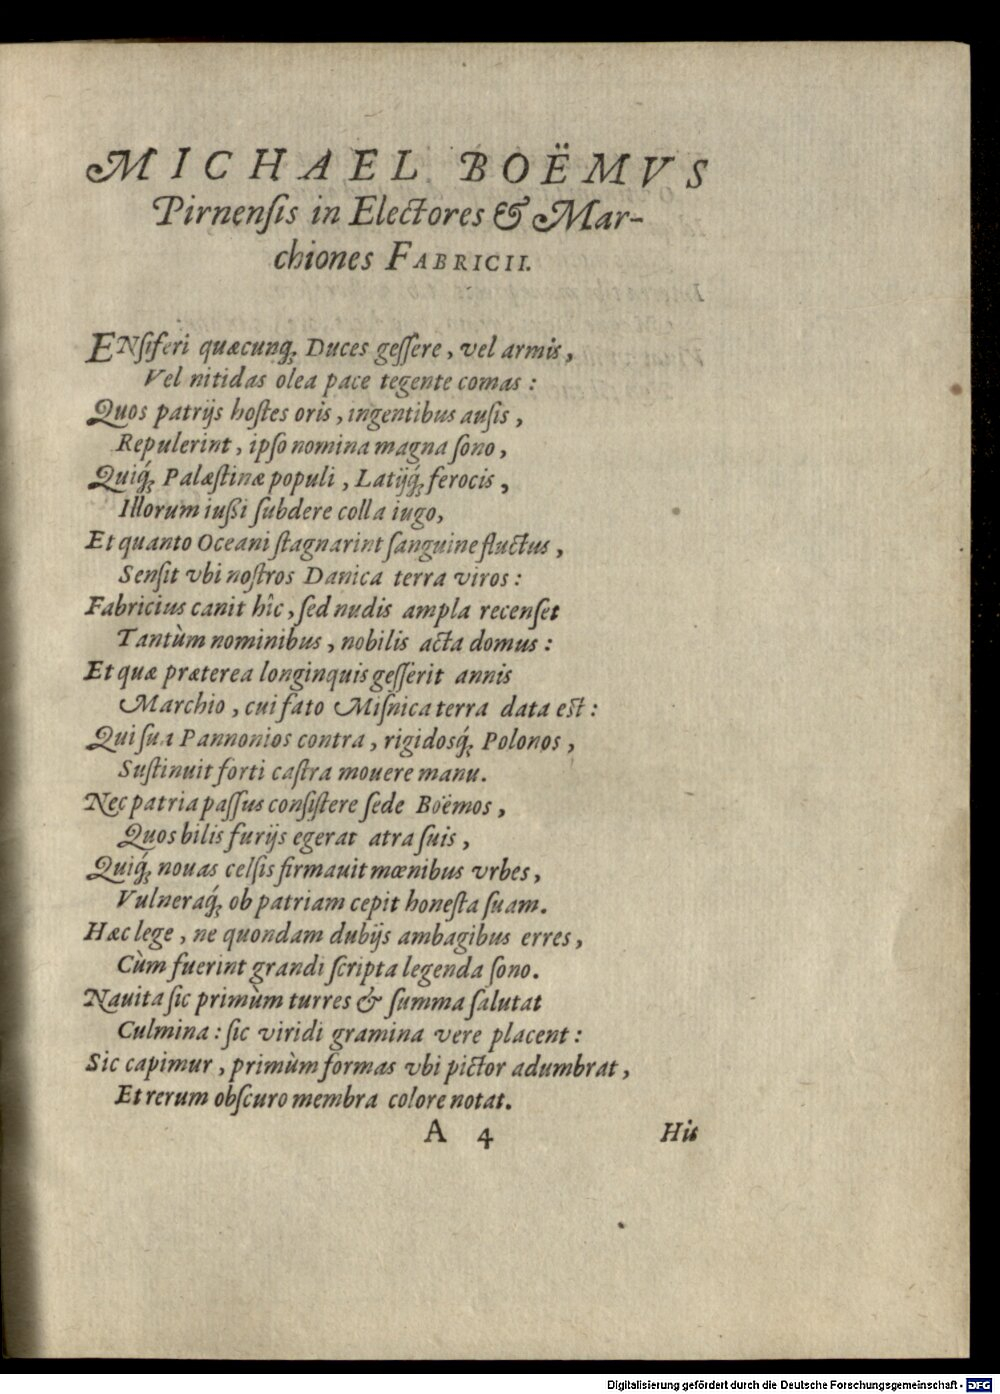 MICHAEL BOËMVS
Pirnenſis in Electores & Mar-
chiones FABRICII.
ENſiferi quæcunq́; Duces geſſere, vel armis,
Vel nitidas olea pace tegente comas:
Quos patrijs hoſtes oris, ingentibus auſis,
Repulerint, ipſo nomina magna ſono,
Quiq́; Palæſtinæ populi, Latijq́; ferocis,
Illorum iußi ſubdere colla iugo,
Et quanto Oceani ſtagnarint ſanguine fluctus,
Senſit vbi noſtros Danica terra viros:
Fabricius canit hîc, ſed nudis ampla recenſet
Tantùm nominibus, nobilis acta domus:
Et quæ præterea longinquis geſſerit annis
Marchio, cui fato Miſnica terra data est:
Qui ſua Pannonios contra, rigidosq́; Polonos,
Suſtinuit forti caſtra mouere manu.
Nec patria paſſus conſiſtere ſede Boëmos,
Quos bilis furijs egerat atra ſuis,
Quiq́; nouas celſis firmauit mœnibus vrbes,
Vulneraq́; ob patriam cepit honeſta ſuam.
Hæc lege, ne quondam dubijs ambagibus erres,
Cùm fuerint grandi ſcripta legenda ſono.
Nauita ſic primùm turres & ſumma ſalutat
Culmina: ſic viridi gramina vere placent:
Sic capimur, primùm formas vbi pictor adumbrat,
Et rerum obſcuro membra colore notat.
A 4 His
Digitalisierung gefördert durch die Deutsche Forschungsgemeinschaft - DFG